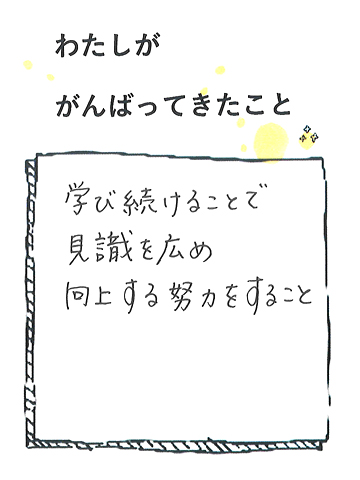 わたしが
がんばってきたこと
学び続けることで
見識を広め
向上する努力をすること